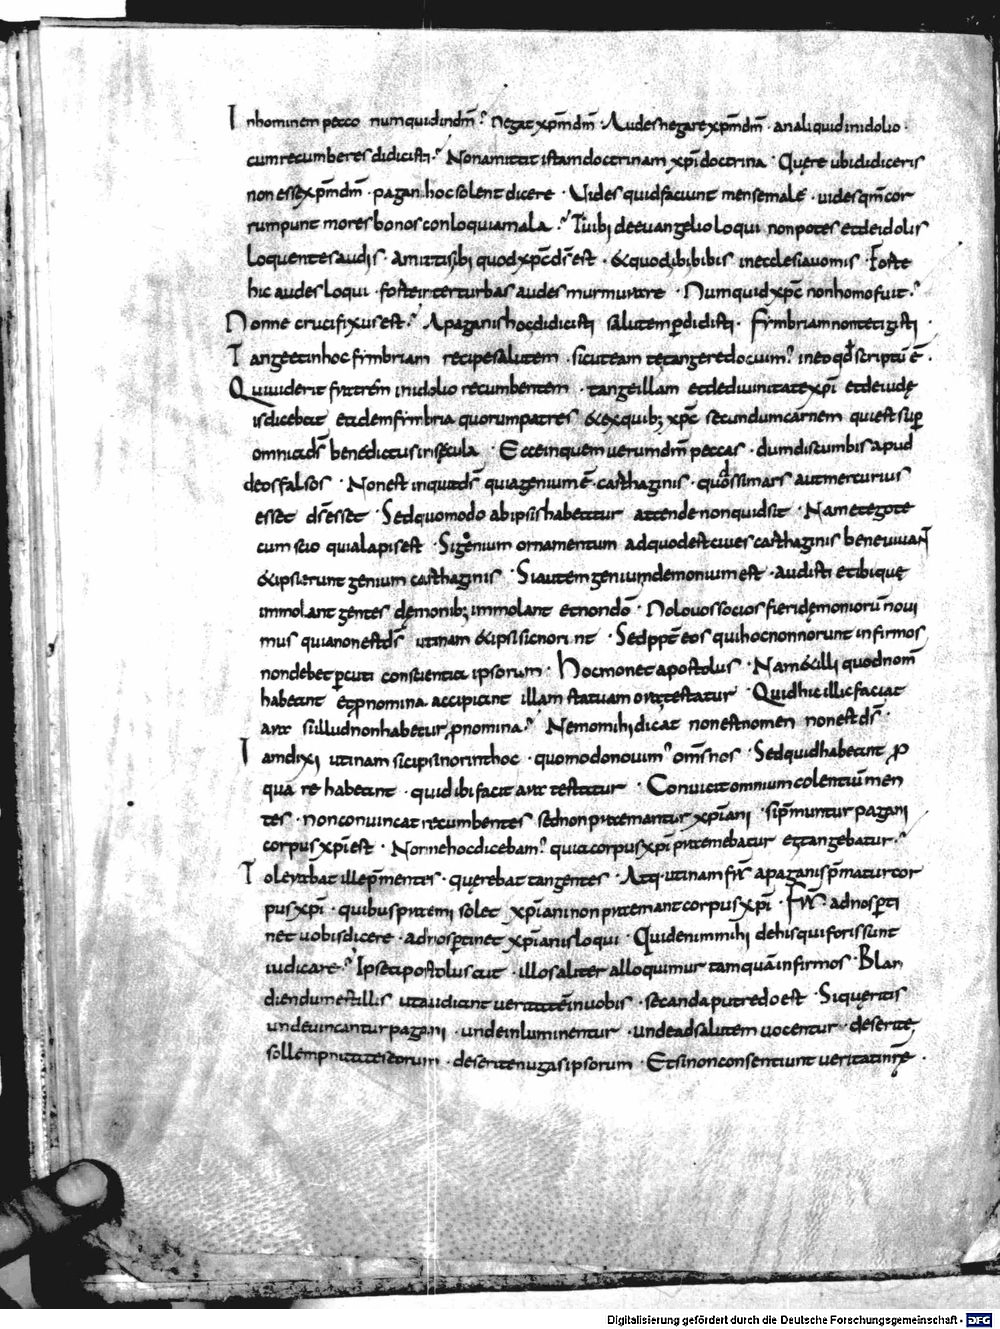 In hominem pecco numquid in dm̄? Negat xp̄m dm̄ · Audes negare xp̄m dm̄ · an aliquid in idolio ·
cum recumberes didicisti? Non amittit istam doctrinam xp̄i doctrina · Quęre ubi didiceris
non esse xp̄m dm̄ · pagani hoc solent dicere · Vides quid faciunt mensę malę · uides qm̄ cor
rumpunt mores bonos conloquia mala? Tu ibi de euangelio loqui non potes et de idolis
loquentes audis · Amittis ibi quod xp̄c ds̄ est · & quod ibi bibis in ecclesia uomis · Forte
hic audes loqui · forte inter turbas audes murmurare · Numquid xp̄c non homo fuit?
Nonne crucifixus est? A paganis hoc didicisti salutem p̱didisti · Fymbriam non tetigisti ·
Tange et in hoc fymbriam recipe salutem · sicut eam te tangere docui m̊? in eo qđ scriptū ē ·
Qui uiderit fratrem in idolio recumbentem · tange illam et de diuinitate xp̄i et de iudę
is dicebat etiam de fymbria quorum patres & ex quib; xp̄c secundum carnem qui est sup̱
omnia ds̄ benedictus in sęcula · Ecce in quem uerum dm̄ peccas · dum discumbis apud
deos falsos · Non est inquit ds̄ quia genium ē carthaginis · quođ si mars aut mercurius
esset ds̄ esset · Sed quomodo ab ipsis habeatur attende non quid sit · Nam et ego te
cum scio quia lapis est · Si genium ornamentum ad quod est ciues carthaginis bene uiuaN̄
& ipsi erunt genium carthaginis · Si autem genium demonium est · audisti et ibi quę
immolant gentes dęmonib; immolant et non dō · Nolo uos socios fieri dęmoniorū noui
mus quia non est ds̄ utinam & ipsi sic norint · Sed ppt̄ eos qui hoc non norunt infirmos
non debet p̱cuti conscientia ipsorum · Hoc monet apostolus · Nam & illi quod nom̄
habeant et ꝓ nomina accipiant illam statuam ora testatur · Quid hic illic faciat
ara si illud non habetur ꝓ nomina? Nemo mihi dicat non est nomen non est ds̄ ·
Iam dixi utinam sic ipsi norint hoc · quomodo nouim̊ om̄s nos · Sed quid habeant ꝓ
qua re habeant · quid ibi faciat ara testatur · Conuicit omnium colentiū men
tes · non conuincat recumbentes sed non prȩmantur xp̄iani · si p̄muntur pagani
corpus xp̄i est · Nonne hoc dicebam? quia corpus xp̄i premebatur et tangebatur?
Tolerabat ille p̄mentes · querebat tangentes · Atq· utinam fr̄s a paganis p̄matur cor
pus xp̄i · quibus premi solet xp̄iani non premant corpus xp̄i · Fr̄s ad nos p̱ti
net uobis dicere · ad nos p̱tinet xp̄ianis loqui · Quid enim mihi de his qui foris sunt
iudicare? Ipse apostolus ait · illos aliter alloquimur tamquā infirmos · Blan
diendum est illis ut audiant ueritatem in uobis · secanda putredo est · Si quęritis
unde uincantur pagani · unde inluminentur · unde ad salutem uocentur · deserite
sollempnitates eorum · deserite nugas ipsorum · Et si non consentiunt ueritati nr̄ę ·
Digitalisierung gefördert durch die Deutsche Forschungsgemeinschaft - DFG